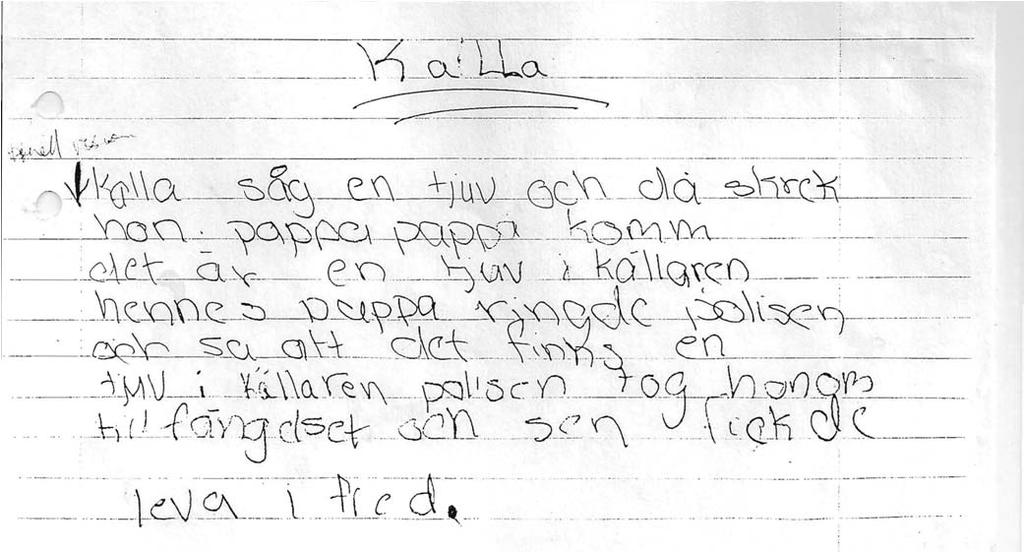 Källa
Kalla såg en tjuv och då skrek
hon. pappa pappa komm
det är en tjuv i källaren
hennes pappa ringde polisen
och sa att det finns en
tjuv i källaren polisen tog honom
till fängelset och sen fick de
leva i fred.